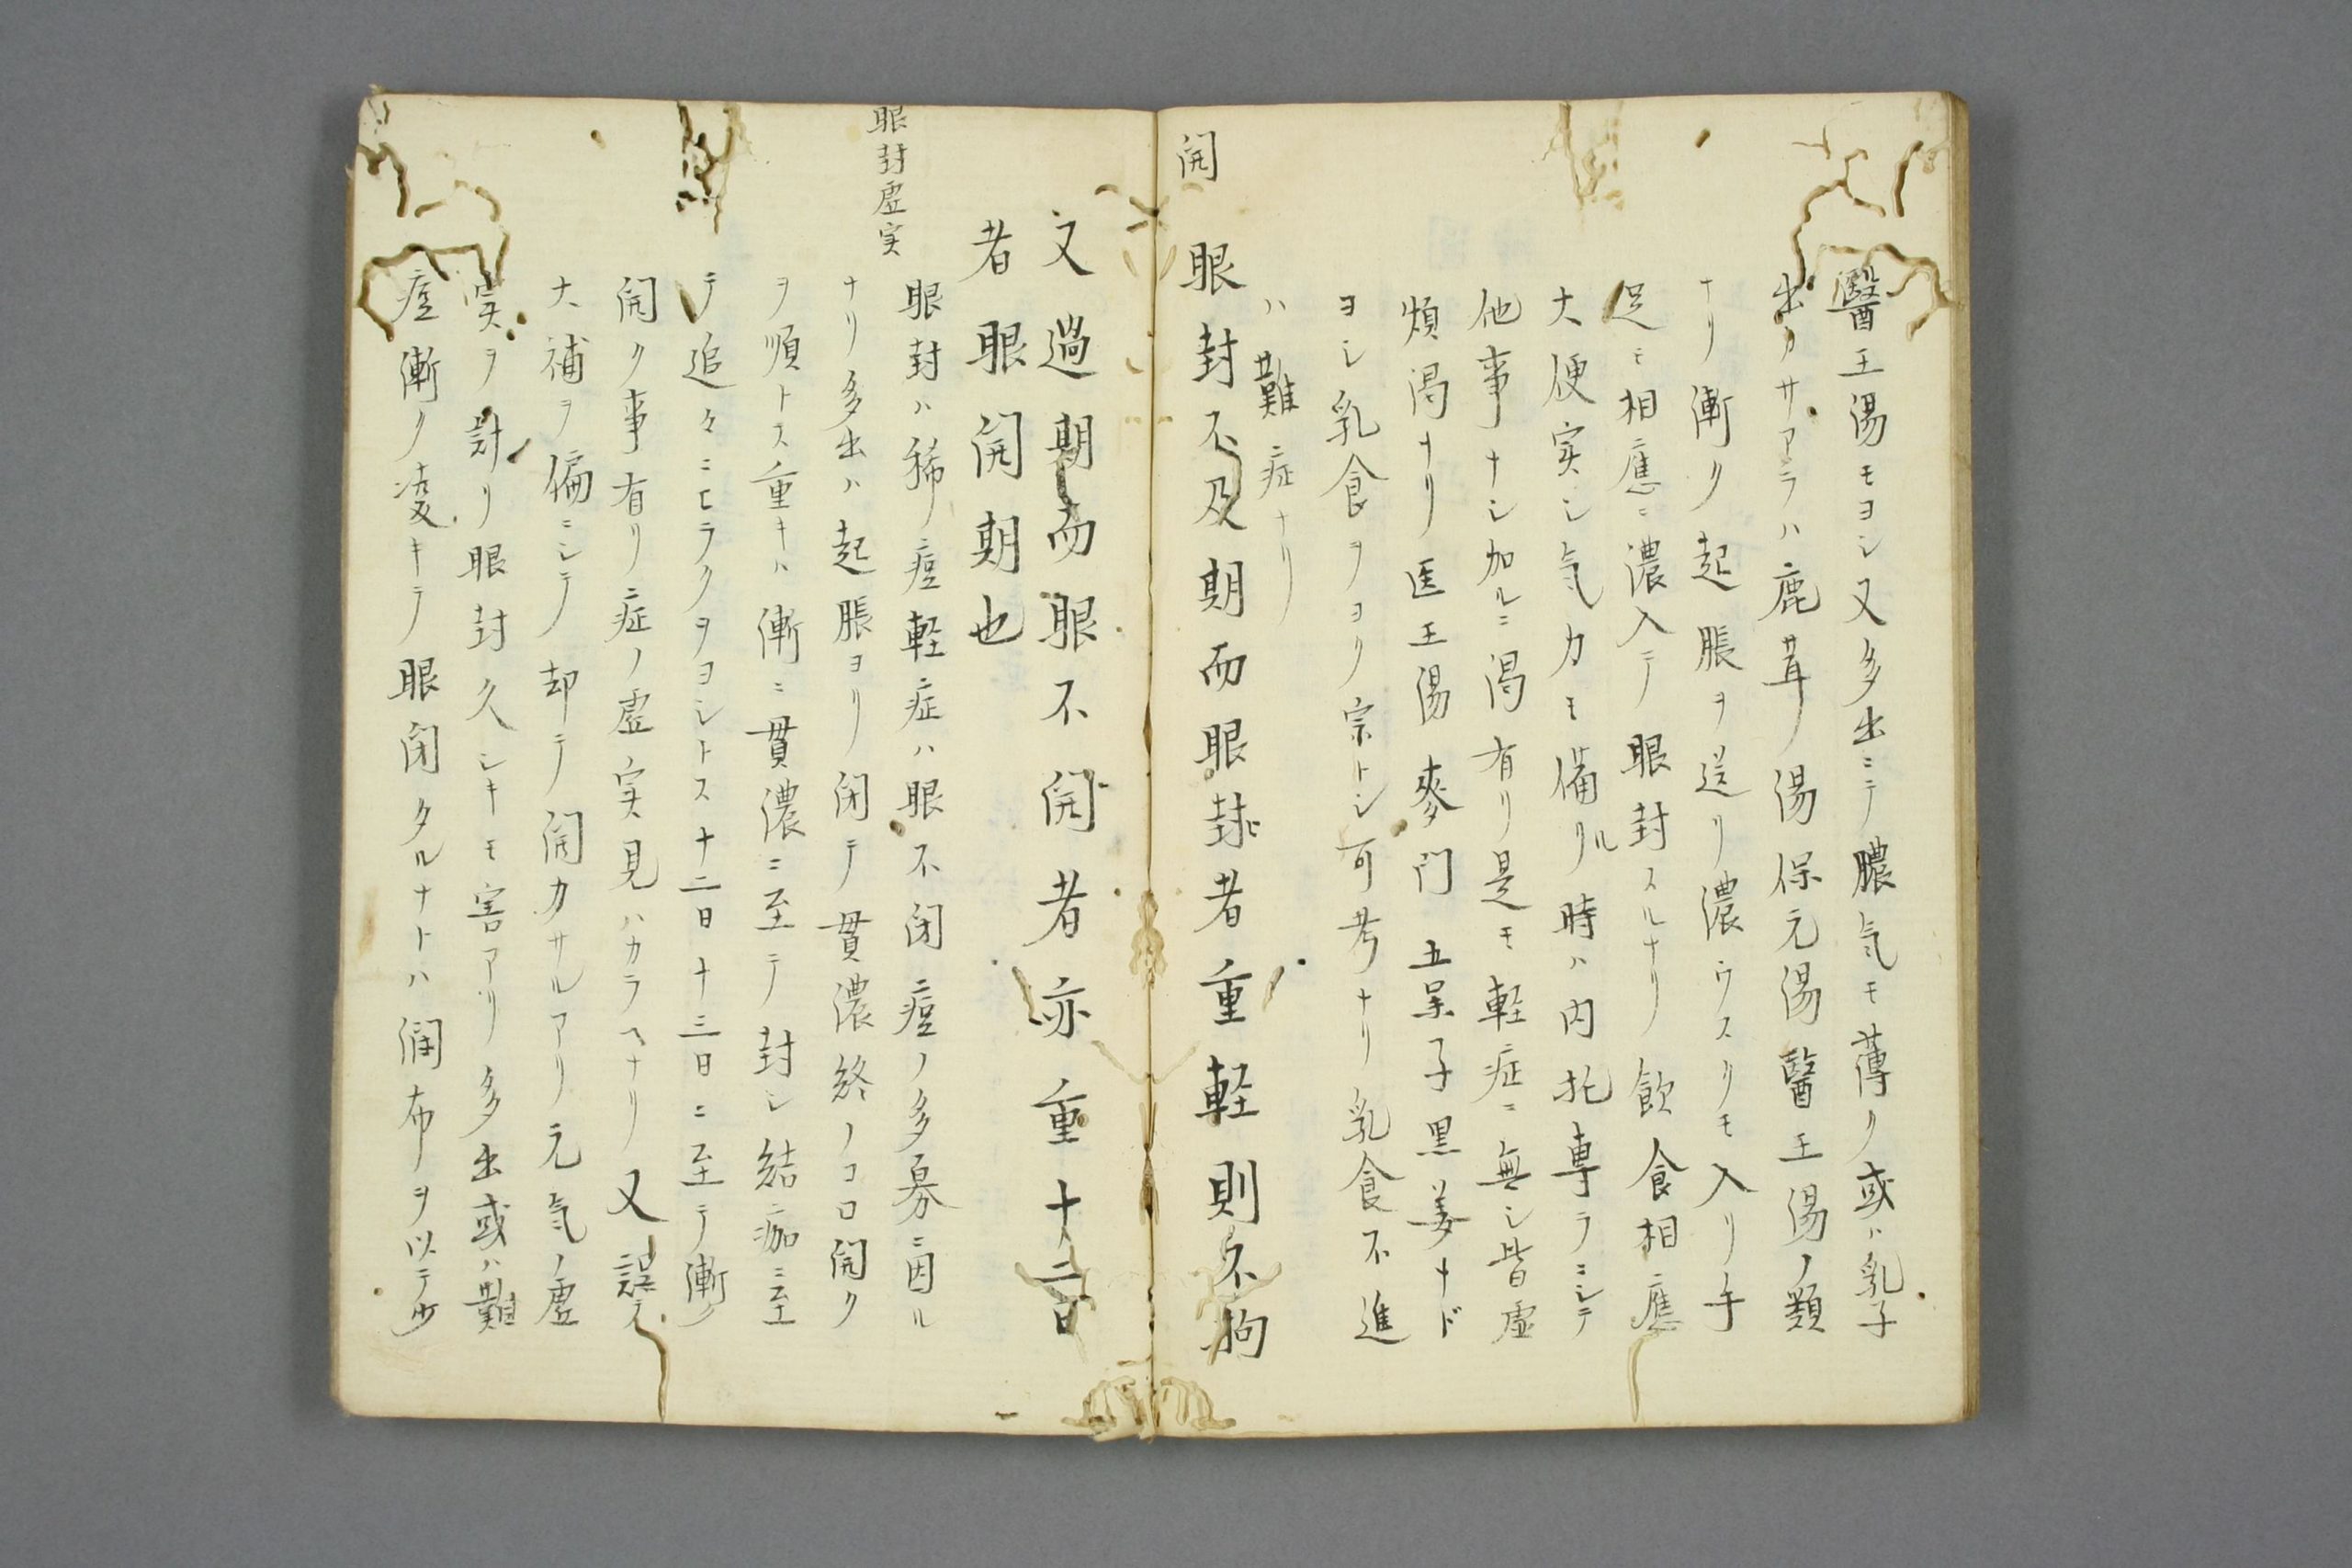 醫王湯モヨシ又多出ニテ膿気モ薄ク或ハ乳子
出カサアラハ鹿茸湯保元湯醫王湯ノ類
ナリ漸ク起脹ヲ送リ濃ウスクモ入リ手
足モ相應ニ濃入テ眼封スルナリ飲食相應
大便実シ気力モ備ル時ハ内托専ラニシテ
他事ナシ加ルニ渇有リ是モ軽症ニ無シ皆虚
煩渇ナリ医王湯麥門五味子黒姜ナド
ヨシ乳食ヲヨク宗トシ可考ナリ乳食不進
ハ難症ナリ
開
眼封不及期而眼封者重軽則不拘
又過期而眼不開者亦重十二日
者眼開期也
眼封虚実
眼封ハ稀リ痘軽症ハ眼不閉痘ノ多募ニ因ル
ナリ多出ハ起脹ヨリ閉テ貫濃終ノコロ開ク
ヲ順トス重キハ漸ニ貫濃ニ至テ封シ結痂ニ至
テ追々ニヒラクヲヨシトス十二日十三日ニ至テ漸ク
開ク事有リ症ノ虚実見ハカラヘナリ又誤テ
大補ヲ偏ニシテ却テ開カサルアリ元気ノ虚
実ヲ計リ眼封久シキモ害アリ多出或ハ難
痘漸ク凌キテ眼閉タルナトハ潤布ヲ以テ少